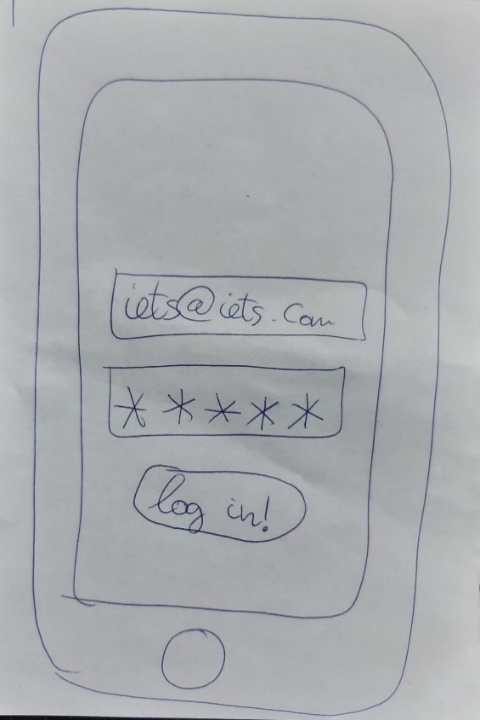 iets@iets.com
*****
log in!